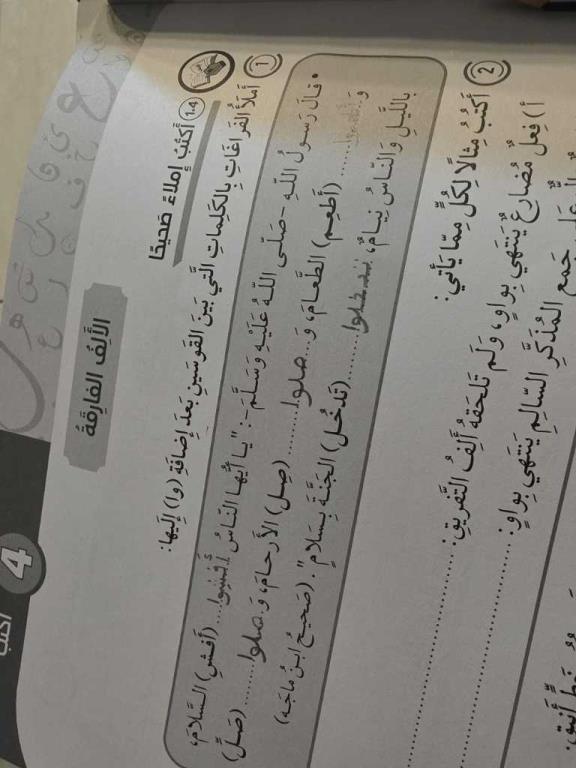 أكتب
4
الأَلِفُ الفارِقَةُ
1.4 أَكتُبُ إملاءً صَحيحًا
1 أَملَأُ الفَراغاتِ بِالكَلِماتِ الَّتي بَينَ القَوسَينِ بَعدَ إضافَةِ (وا) إلَيها:
• قالَ رَسولُ اللهِ -صَلّى اللهُ عَلَيهِ وَسَلَّمَ-: "يا أَيُّها النّاسُ أفشوا (أَفشِ) السَّلامَ،
وَ (أَطعِم) الطَّعامَ، وَ صلوا (صِل) الأَرحامَ، وَ صلوا (صَلِّ)
بِاللَّيلِ وَالنّاسُ نِيامٌ، تدخلوا (تَدخُل) الجَنَّةَ بِسَلامٍ". (صَحيحُ ابنُ ماجَه)
2 أَكتُبُ مِثالًا لِكُلٍّ مِمّا يَأتي:
أ) فِعلٌ مُضارِعٌ يَنتَهي بِواوٍ، وَلَم تَلحَقهُ أَلِفُ التَّفريقِ:
جَمعِ المُذَكَّرِ السّالِمِ يَنتَهي بِواوٍ: